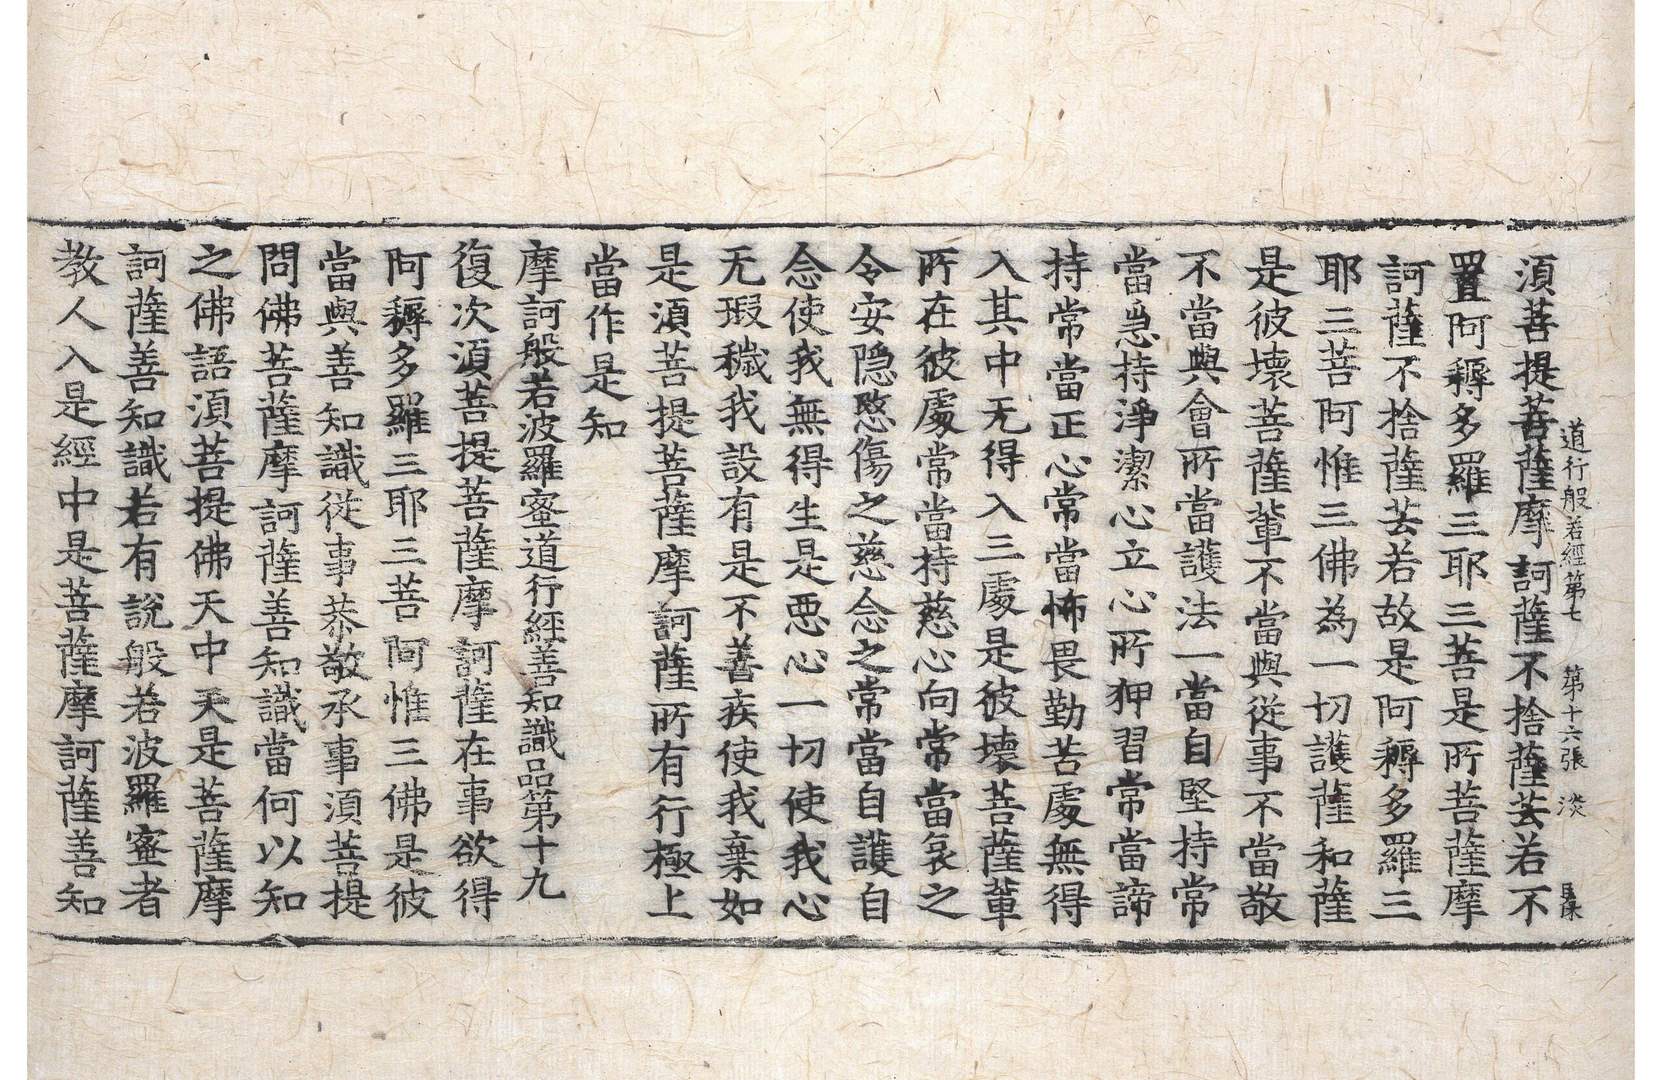 道行般若經第七 第十六張 淡
須菩提菩薩摩訶薩不捨薩芸若不
置阿耨多羅三耶三菩是所菩薩摩
訶薩不捨薩芸若故是阿耨多羅三
耶三菩阿惟三佛為一切護薩和薩
是彼壞菩薩輩不當與從事不當敬
不當與會所當護法一當自堅持常
當急持淨潔心立心所狎習常當諦
持常當正心常當怖畏勤苦處無得
入其中无得入三處是彼壞菩薩輩
所在彼處常當持慈心向常當哀之
令安隐愍傷之慈念之常當自護自
念使我無得生是惡心一切使我心
无瑕穢我設有是不善疾使我棄如
是須菩提菩薩摩訶薩所有行極上
當作是知
摩訶般若波羅蜜道行經善知識品第十九
復次須菩提菩薩摩訶薩在事欲得
阿耨多羅三耶三菩阿惟三佛是彼
當與善知識從事恭敬承事須菩提
問佛菩薩摩訶薩善知識當何以知
之佛語須菩提佛天中天是菩薩摩
訶薩善知識若有說般若波羅蜜者
教人入是經中是菩薩摩訶薩善知